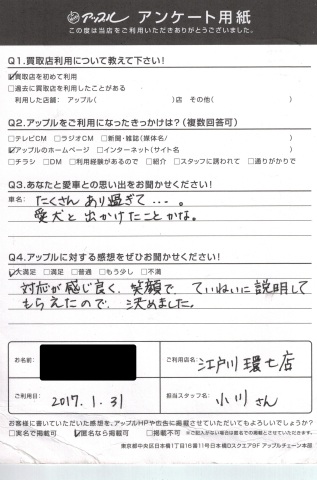 アップル アンケート用紙
この度は当店をご利用いただきありがとうございました。
Q1.買取店利用について教えて下さい!
☑買取店を初めて利用
□過去に買取店を利用したことがある
利用した店舗: アップル( )店 その他( )
Q2.アップルをご利用になったきっかけは?(複数回答可)
□テレビCM □ラジオCM □新聞・雑誌(媒体名/ )
☑アップルのホームページ □インターネット(サイト名 )
□チラシ □DM □利用経験があるので □紹介 □スタッフに誘われて □通りがかりで
Q3.あなたと愛車との思い出をお聞かせください!
車名: たくさんあり過ぎて…。
愛犬と出かけたことかな。
Q4.アップルに対する感想をぜひお聞かせください!
☑大満足 □満足 □普通 □もう少し □不満
対応が感じ良く、笑顔で、ていねいに説明して
もらえたので、決めました。
お名前:
ご利用店名: 江戸川環七店
ご利用日: 2017.1.31
担当スタッフ名: 小川さん
お客様に書いていただいた感想を、アップルHPや広告に掲載させていただいてもよろしいでしょうか?
□実名で掲載可 ☑匿名なら掲載可 □掲載不可 ※ご記入がない場合は匿名での掲載とさせていただきます。
東京都中央区日本橋1丁目16番11号日本橋Dスクエア9F アップルチェーン本部